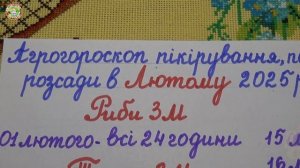 Агрогороскоп пікірування,
розсади в Лютому 2025р
Риби 3М
01лютого-всі 24години 15